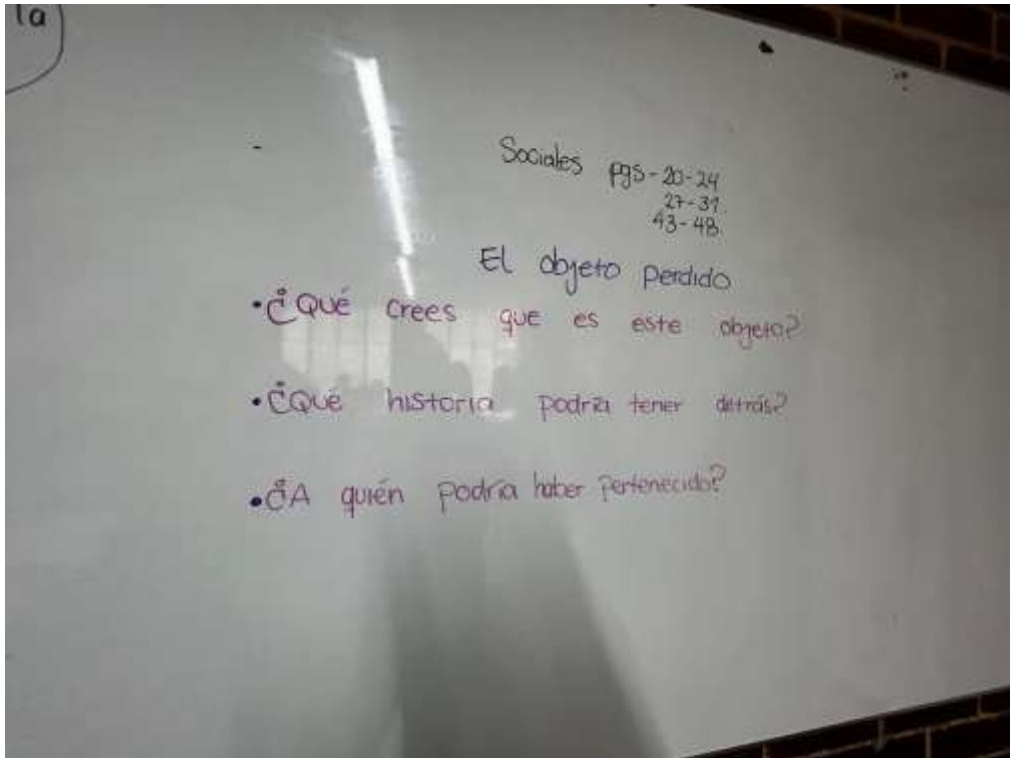 la
Sociales pgs-20-24
27-31
43-48
El objeto perdido
•¿Qué crees que es este objeto?
•¿Qué historia podría tener detrás?
•¿A quién podría haber pertenecido?